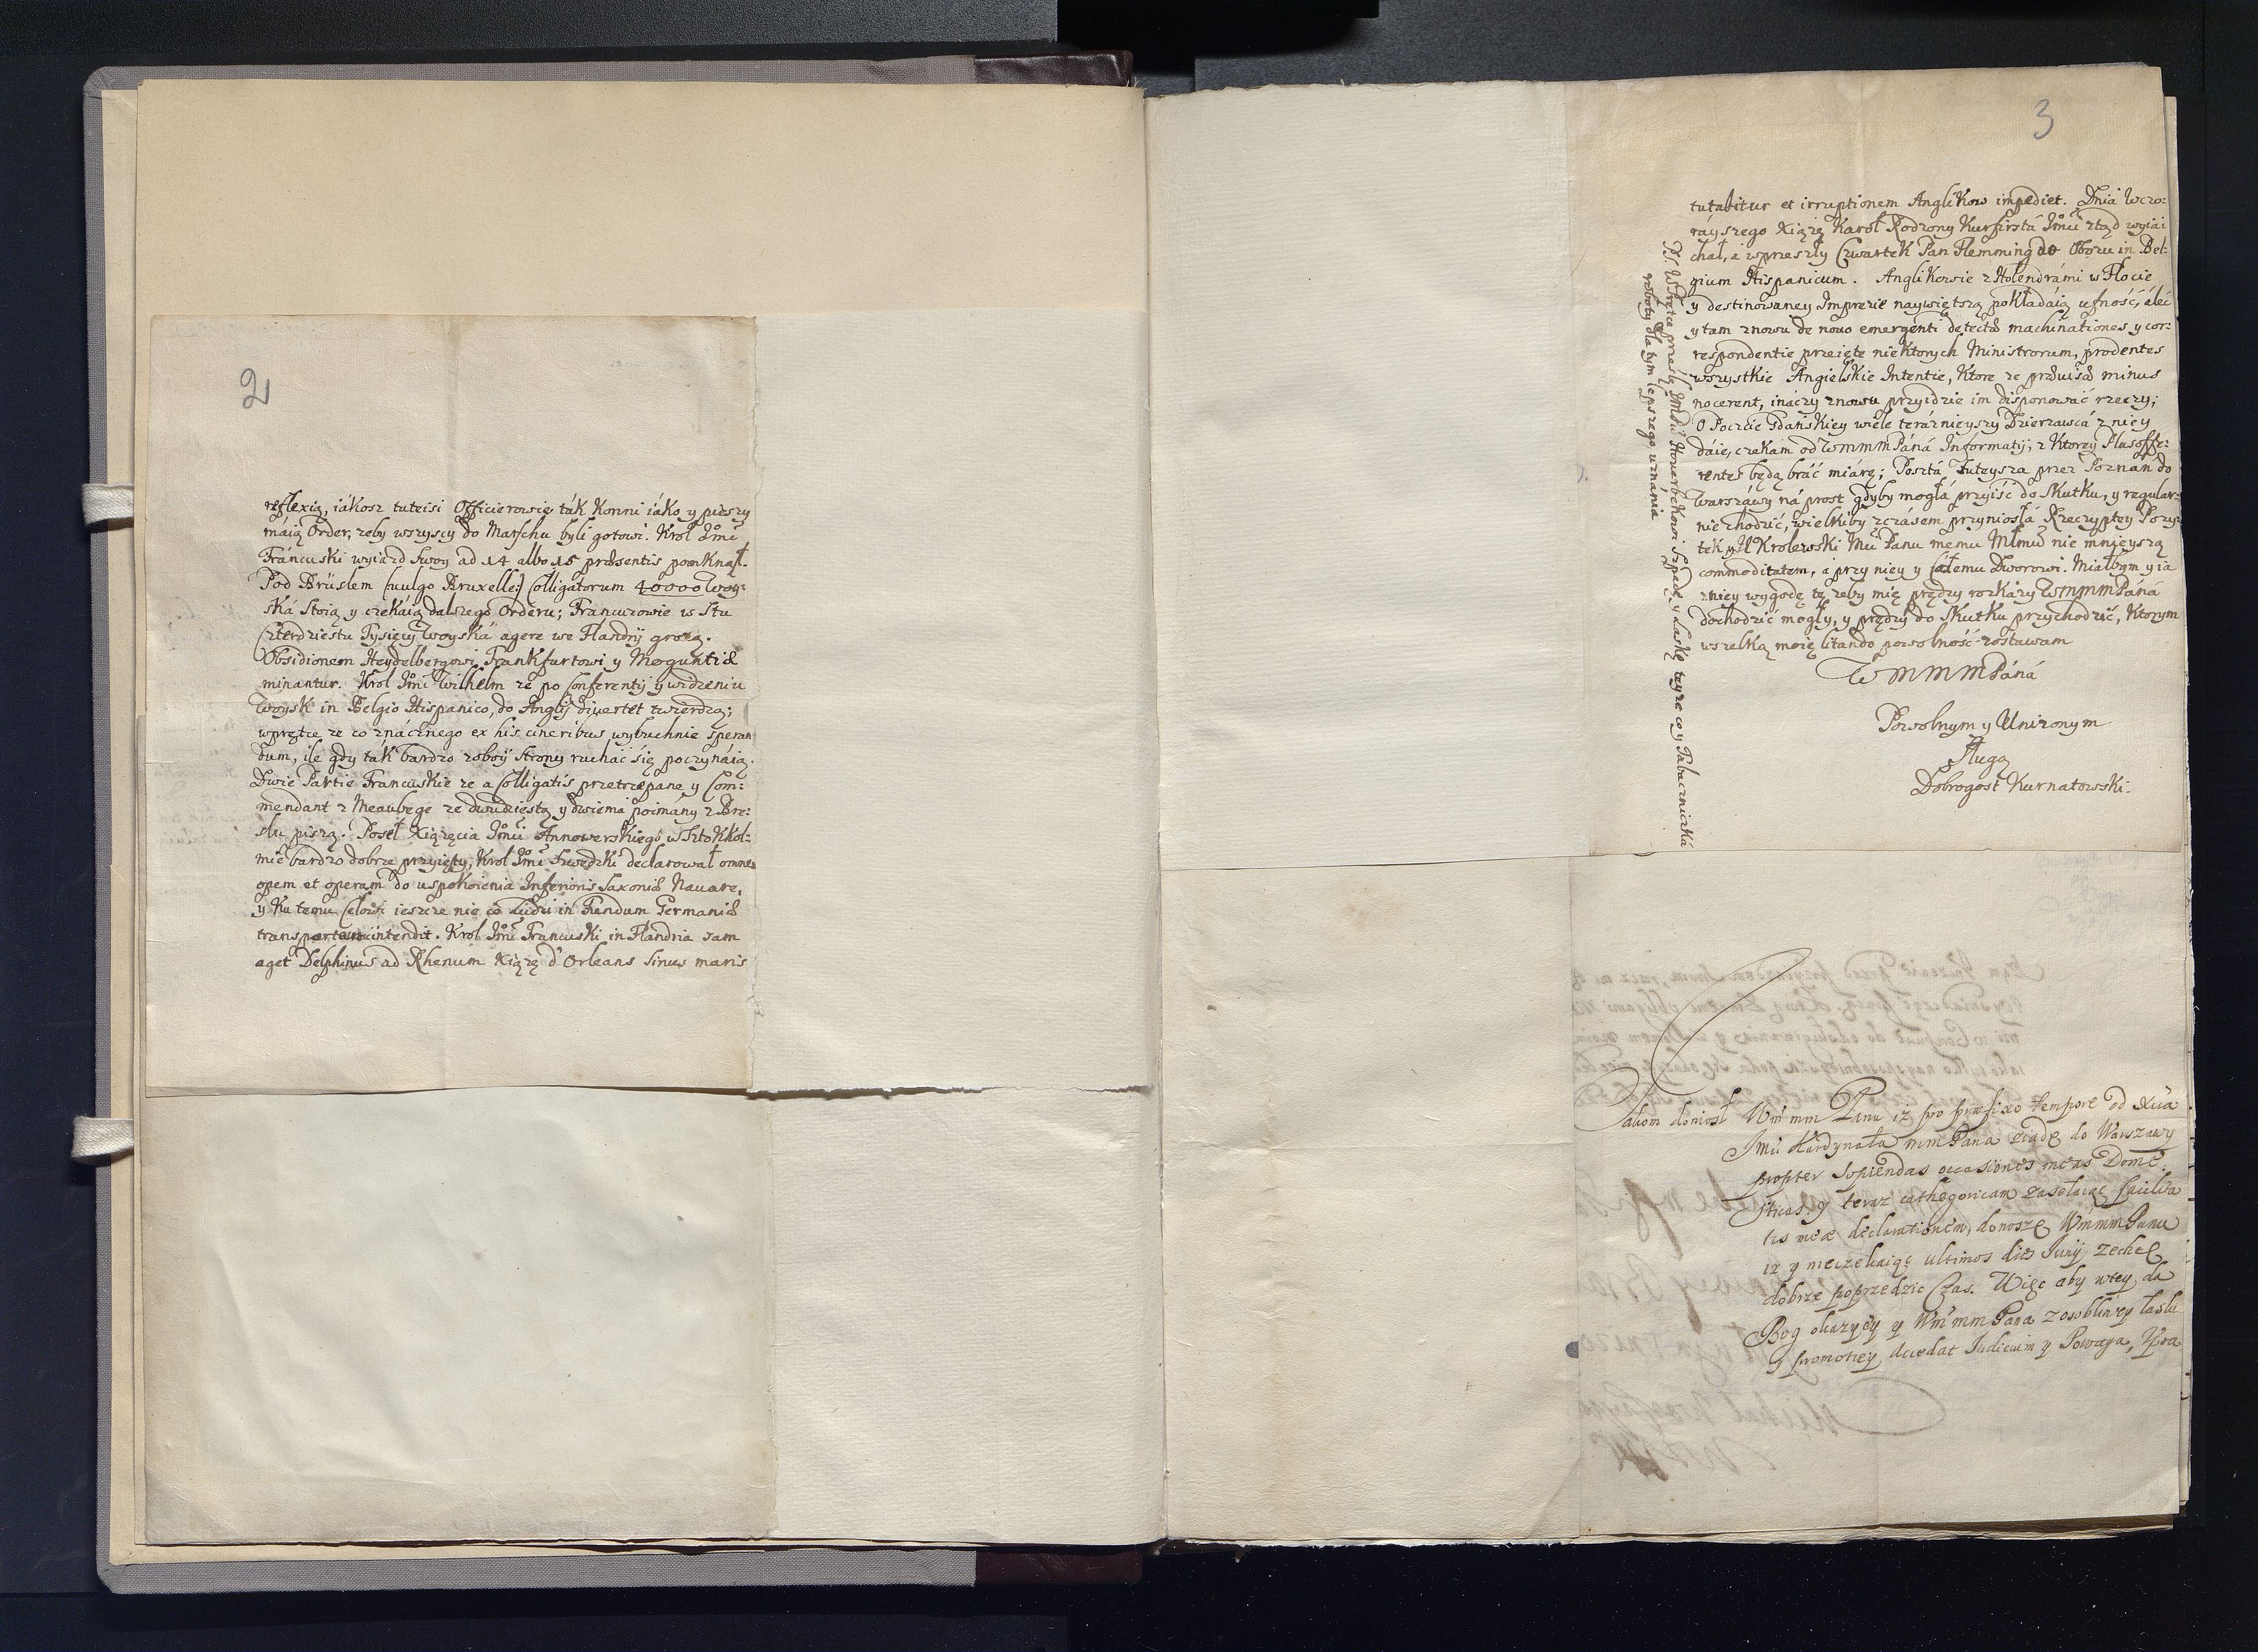 2
reflexią, iákosz tuteisi Officierowie ták Konni iáko y pieszy
máią Order, zeby wszyscy do Marschu byli gotowi. Krol Jmć
Fráncuski wyiazd swoy ad 14 albo 15 præsentis pomknął.
Pod Brüslem (vulgo Bruxelle) Colligatorum 40000 Woy:
ská stoią y czekáią dalszego Orderu; Francuzowie w Stu
Czterdziestu Tysięcy Woyská agere we Flandrij grozą.
Obsidionem Heydelbergowi Frankfurtowi y Moguntiæ
minantur. Krol Jmć Wilhelm ze po Conferentij y widzeniu
Woysk in Belgio Hispanico, do Anglij divertet twierdzą;
wprętce ze co znácznego ex his cineribus wybuchnie speran
dum, ile gdy ták bardzo z oboij strony ruchać się poczynáią.
Dwie Partie Francuskie ze a Colligatis przetrzepane y Com:
mendant z Meaubege ze dwudziestą y dwiema poimány z Bre:
slu piszą. Poseł Xiązęcia Jmći Annowerskiego w Sztokkol:
mie bardzo dobrze przyięty, Krol Jmć Szwedzki declarował omnem
opem et operam do uspokoienia Inferioris Saxoniæ Navare,
y Ku temu Celowi ieszcze nie co Ludzi in Fundum Germaniæ
transportare intendit. Krol Jmć Francuski in Flandria sam
aget Delphinus ad Rhenum Xiązę d'Orleans sinus maris
3
tutabitur et irruptionem Anglikow impediet. Dnia wczo:
ráyszego Xiązę Karol Rodzony Kurfirstá Jmći ztąd wyiái
chał, a w przeszły Czwartek Pan Flemming do Obozu in Bel:
gium Hispanicum. Anglikowie z Holendrámi w Flocie
y destinowaney Imprezie naywiętszą pokładáią ufność, álec
y tam znowu de novo emergenti detectæ machinationes y cor:
respondentie przeięte niektorych Ministrorum, prodentes
wszystkie Angielskie Intentie, Ktore ze prævisæ minus
nocerent, ináczy znowu przyidzie im disponowáć rzeczy;
O Poczcie Gdańskiey wiele teráznieyszy Dzierzawcá z niey
dáie, czekam od WMMMPáná Informatij, z Ktorey Plusoffe:
rentes będą bráć miárę; Posztá Tuteysza przez Poznań do
Warszáwy ná prost gdyby mogłá przyiść do Skutku, y regular:
nie chodzić, wielkiby zczásem przyniosłá Rzeczyptey Pozy:
tek y JKrolewski Mći Panu memu Młmu nie mnieyszą
commoditatem, a przy niey y całemu Dworowi. Miałbym y ia
z niey wygodę tę zeby mię prędzy rozkázy WMMMPáná
dochodzić mogły, y prędzy do Skutku przychodzić, Ktorym
wszelką moię litando powolność zostawam
WMMMPáná
Powolnym y Unizonym
Sługą
Dobrogost Kurnatowski.
PS. Wprętce prześlę Szpadę, y Laskę teyze co y Tabaczniczká
roboty dla tym lepszego uznánia
Jakom doniosł Wm mm Panu iz pro præfixo tempore od Xcia
Jmci Kardynała mm Pana ziadę do Warszawy
propter sopiendas occasiones meas Dome:
sticas, y teraz cathegoricam zasełaiąc facilita
tis meæ declarationem, donoszę Wm mm Panu
iz y nieczekaiąc ultimos dies Junij zechcę
dobrze poprzedzic Czas. Więc aby w tey, da
Bog okazyey y Wm mm Pana z osobliwey łaski
y promotiey, Accedat Judicium y Powaga, Upra